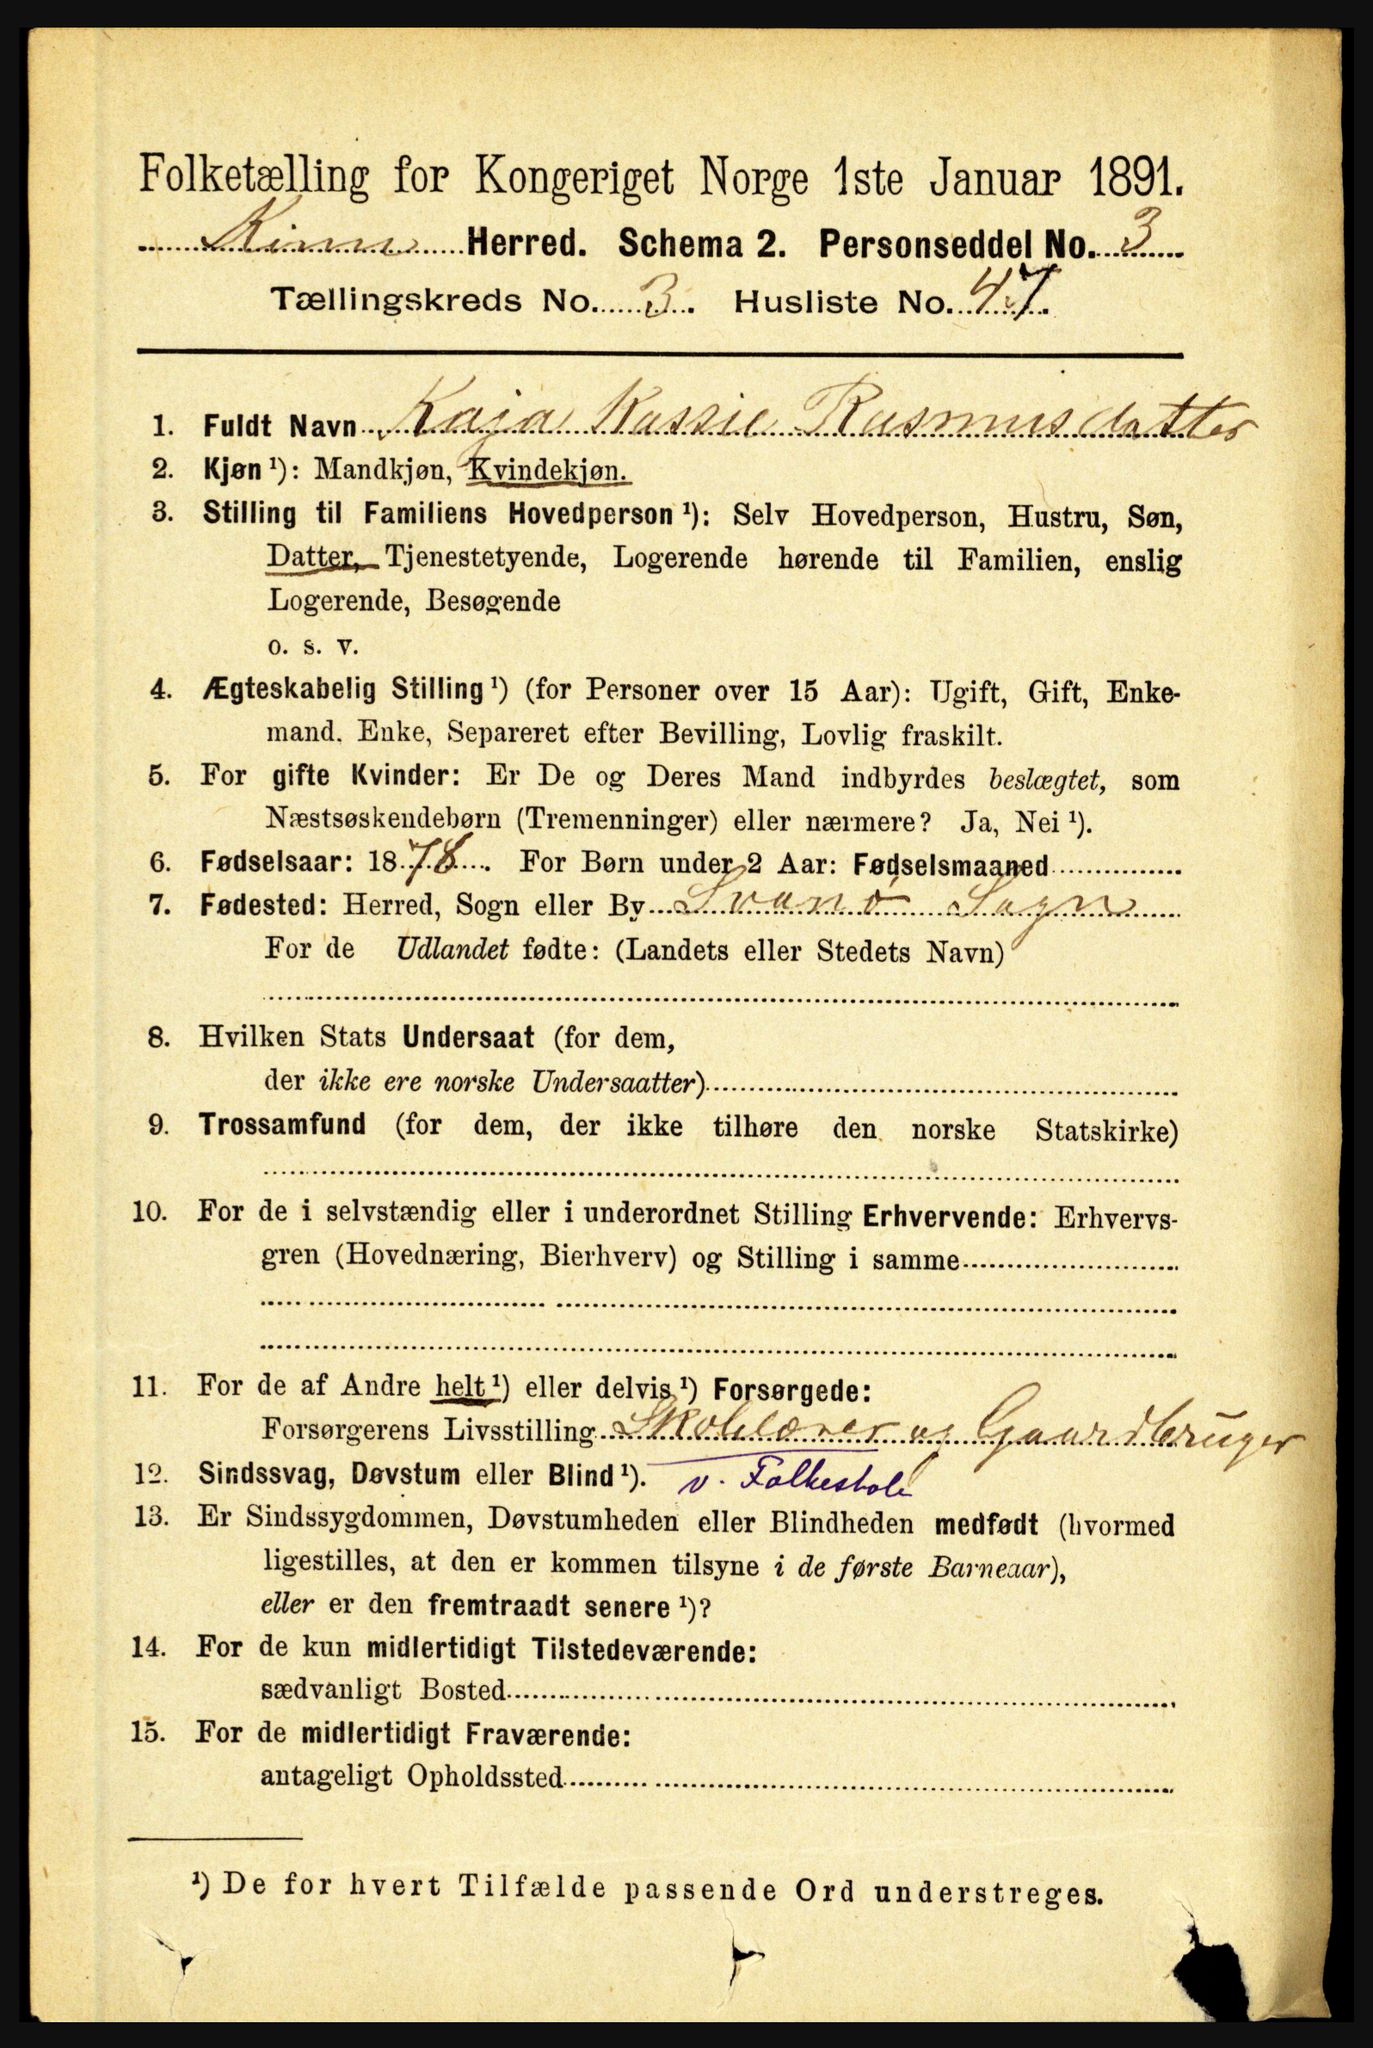 Folketælling for Kongeriget Norge 1ste Januar 1891.
Kinn Herred. Schema 2. Personseddel No. 3
Tællingskreds No. 3. Husliste No. 47.
1. Fuldt Navn Kaja Kassie Rasmusdatter
2. Kjøn ¹): Mandkjøn, Kvindekjøn.
3. Stilling til Familiens Hovedperson ¹): Selv Hovedperson, Hustru, Søn,
Datter, Tjenestetyende, Logerende hørende til Familien, enslig
Logerende, Besøgende
o. s. v.
4. Ægteskabelig Stilling ¹) (for Personer over 15 Aar): Ugift, Gift, Enke-
mand. Enke, Separeret efter Bevilling, Lovlig fraskilt.
5. For gifte Kvinder: Er De og Deres Mand indbyrdes beslægtet, som
Næstsøskendebørn (Tremenninger) eller nærmere? Ja, Nei ¹).
6. Fødselsaar: 1878. For Børn under 2 Aar: Fødselsmaaned
7. Fødested: Herred, Sogn eller By Svanø Sogn
For de Udlandet fødte: (Landets eller Stedets Navn)
8. Hvilken Stats Undersaat (for dem,
der ikke ere norske Undersaatter)
9. Trossamfund (for dem, der ikke tilhøre den norske Statskirke)
10. For de i selvstændig eller i underordnet Stilling Erhvervende: Erhvervs-
gren (Hovednæring, Bierhverv) og Stilling i samme
11. For de af Andre helt ¹) eller delvis ¹) Forsørgede:
Forsørgerens Livsstilling Skolelærer og Gaardbruger
12. Sindssvag, Døvstum eller Blind ¹). v. Folkeskole
13. Er Sindssygdommen, Døvstumheden eller Blindheden medfødt (hvormed
ligestilles, at den er kommen tilsyne i de første Barneaar),
eller er den fremtraadt senere ¹)?
14. For de kun midlertidigt Tilstedeværende:
sædvanligt Bosted
15. For de midlertidigt Fraværende:
antageligt Opholdssted
¹) De for hvert Tilfælde passende Ord understreges.